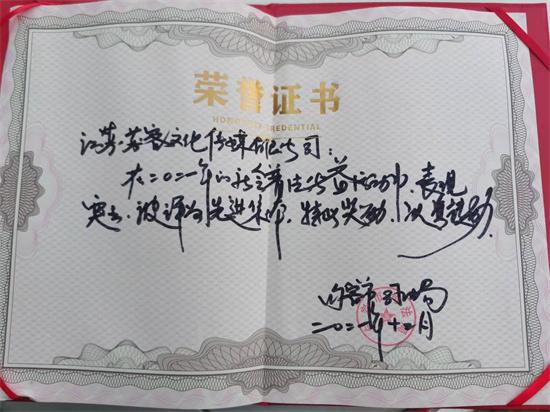 荣誉证书
HONOR CREDENTIAL
江苏苏家文化传媒有限公司：
在二〇二一年的社会普法公益活动中，表现
突出，被评为先进集体，特此奖励，以资鼓励。
句容市司法局
二〇二一年十二月